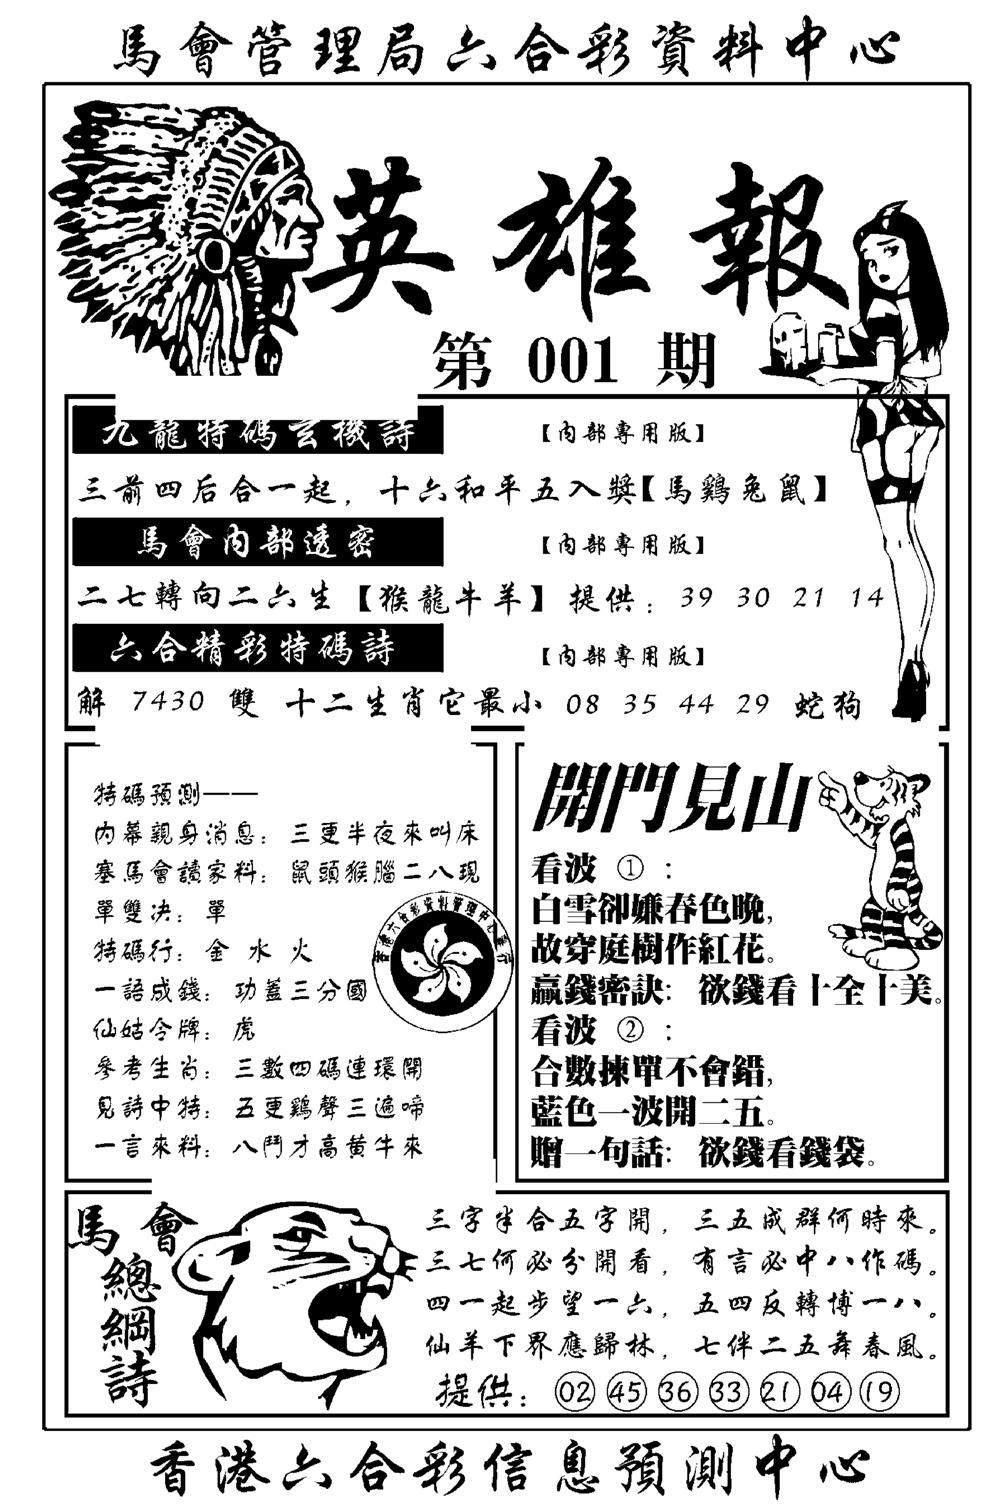 馬會管理局六合彩資料中心
英雄報
第 001 期
九龍特碼玄機詩 【內部專用版】
三前四后合一起，十六和平五入獎【馬鷄兔鼠】
馬會內部透密 【內部專用版】
二七轉向二六生【猴龍牛羊】提供：39 30 21 14
六合精彩特碼詩 【內部專用版】
解 7430 雙 十二生肖它最小 08 35 44 29 蛇狗
特碼預測——
內幕親身消息：三更半夜來叫床
塞馬會讀家料：鼠頭猴腦二八現
單雙决：單
特碼行：金 水 火
一語成錢：功蓋三分國
仙姑令牌：虎
參考生肖：三數四碼連環開
見詩中特：五更鷄聲三遍啼
一言來料：八鬥才高黄牛來
開門見山
看波 ①：
白雪卻嫌春色晚，
故穿庭樹作紅花。
贏錢密訣：欲錢看十全十美。
看波 ②：
合數揀單不會錯，
藍色一波開二五。
贈一句話：欲錢看錢袋。
馬會
總綱詩
三字半合五字開，三五成群何時來。
三七何必分開看，有言必中八作碼。
四一起步望一六，五四反轉博一八。
仙羊下界應歸林，七伴二五舞春風。
提供：02 45 36 33 21 04 19
香港六合彩信息預測中心